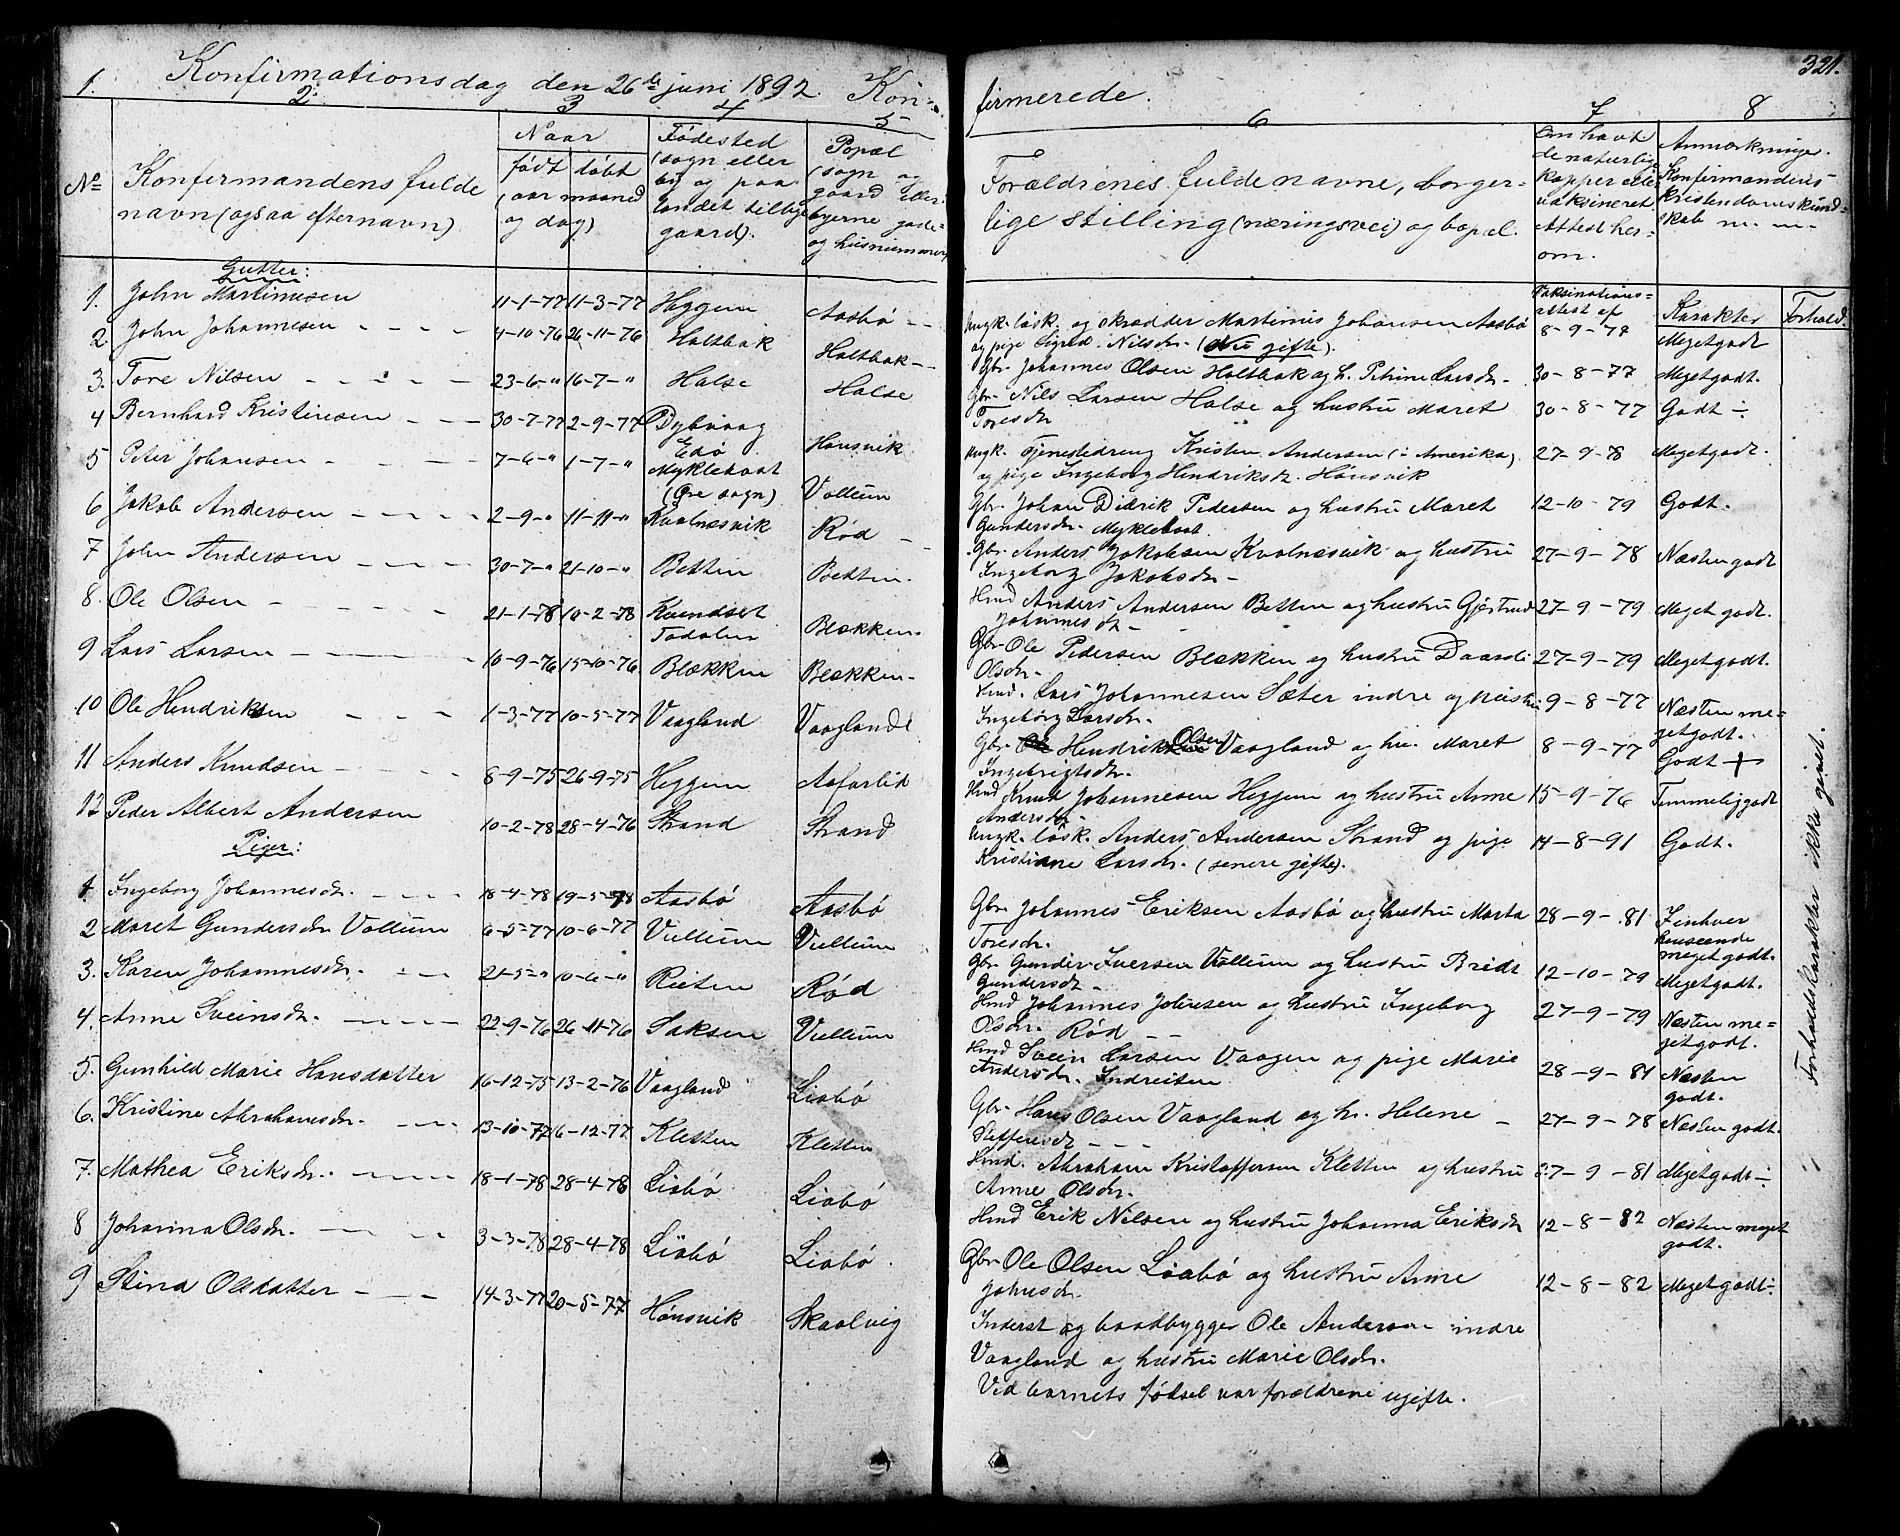 Konfirmationsdag den 26de juni 1892. Kon-
1. 2. 3 4 5
No
Konfirmandens fulde
navn (ogsaa efternavn)
Naar
født døbt
(aar maaned
og dag)
Fødested
(sogn eller
by og paa
landet tillige
gaard).
Popæl
(sogn og
gaard eller
byerne gade-
og husnummer)
Gutter:
1. John Martinusen 11-1-77 11-3-77 Heggem Aasbø
2 John Johannesen 4-10-76 26-11-76 Holtbak Holtbak
3. Tore Nilsen 23-6-" 16-7-" Halse Halse
4 Bernhard Kristensen 30-7-77 2-9-77 Dybvaag Edø Hønsvik
5 Peter Johansen 7-6-" 1-7-" Myklebost (Øre sogn) Vollum
6 Jakob Andersen 2-9-" 11-11-" Kvalnæsvik Rød
7 John Andersen 30-7-" 21-10-" Betten Betten.
8. Ole Olsen 21-1-78 10-2-78 Kvendset Todalen Blekken.
9 Lars Larsen 10-9-76 15-10-76 Blækken Blekken
10 Ole Hendriksen 1-3-77 10-5-77 Vaagland Vaagland
11 Anders Knudsen 8-9-75 26-9-75 Heggem Aafarlid
12 Peder Albert Andersen 10-2-78 28-4-76 Strand Strand
Piger:
1. Ingeborg Johannesdr. 18-4-78 19-5-78 Aasbø Aasbø
2 Maret Gundersdr. Vollum 6-5-77 10-6-77 Vullum Vullum
3. Karen Johannesdr. 21-5-" 10-6-" Reiten Rød
4. Anne Sveinsdr. 22-9-76 26-11-76 Saksen Vullum
5. Gunhild Marie Hansdatter 16-12-75 13-2-76 Vaagland Liabø
6. Kristine Abrahamsdr. 13-10-77 6-12-77 Kletten Kletten
7. Mathea Eriksdr. 18-1-78 28-4-78 Liabø Liabø
8 Johanna Olsdr. 3-3-78 28-4-78 Liabø Liabø.
9 Stina Olsdatter 14-3-77 20-5-77 Hønsvik Skaalvig
firmerede. 321.
6 7 8
Forældrenes fulde navne, borger-
lige stilling (næringsvei) og bopæl.
Om havt
de naturlige
kopper eller
vaksineret
Attest her-
om.
Anmærkninger.
Konfirmandens
kristendomskund-
skab m. m.
Vaksinations-
attest af
Karakter Forhold.
Ungk. løsk. og skrædder Martinus Johansen Aasbø 8-9-78 Megetgodt
og pige Sigrid Nilsdr. (nu gifte).
Gbr. Johannes Olsen Holtbak og h. Petrine Larsdr. 30-8-77 Megetgodt.
Gbr. Nils Larsen Halse og hustru Maret 30-8-77 Godt ÷
Toresdr
Ungk. Tjenestedreng Kristen Andersen (i Amerika) 27-9-78 Megetgodt.
og pige Ingeborg Hendriksdr. Hønsvik
Gbr. Johan Didrik Pedersen og hustru Maret 12-10-79 Godt.
Gundersdr. Myklebost.
Gbr. Anders Jakobsen Kvalnæsvik og hustru 27-9-78 Næsten godt
Ingeborg Jakobsdr.
Hmd Anders Andersen Betten og hustru Gjertrud 27-9-79 Meget godt.
Johannesdr
Gbr. Ole Pedersen Blækken og hustru Daardi 27-9-79 Megetgodt.
Olsdr.
Hmd. Lars Johannesen Sæter indre og hustru 9-8-77 Næsten me-
Ingeborg Larsdr. getgodt.
Gbr. Hendrik Olsen Vaagland og hu. Maret 8-9-77 Godt +
Ingebrigtsdr.
Hmd Knut Johannesen Heggem og hustru Anne 15-9-76 Temmeliggodt
Andersdr
Ungk. løsk. Anders Andersen Strand og pige 14-8-91 Godt.
Kristianne Larsdr. (senere gifte).
Gbr. Johannes Eriksen Aasbø og hustru Marta 28-9-81 I enhver
Toresdr. henseende
megetgodt.
Gbr. Gunder Iversen Vollum og hustru Bridt 12-10-79 Megetgodt.
Gundersdr
Hmd Johannes Johnsen og hustru Ingeborg 27-9-79 Næsten me-
Olsdr. Rød getgodt.
Hmd Svein Larsen Vaagen og pige Marie 28-9-81 Næsten
Andersdr. Indreiten godt.
Gbr. Hans Olsen Vaagland og h. Helene 27-9-78 Næsten godt.
Steffensdr
Hmd. Abraham Kristoffersen Kletten og hustru 27-9-81 Megetgodt ÷
Anne Olsdr.
Hmd Erik Nilsen og hustru Johanna Eriksdr 12-8-82 Næsten meget
godt.
Gbr. Ole Olsen Liabø og hustru Anne 12-8-82 Megetgodt ÷
Johnsdr.
Inderst og baadbygger Ole Andersen indre
Vaagland og hustru Marie Olsdr.
Ved barnets fødsel var forældrene ugifte.
Forholdskarakter ikke givet.